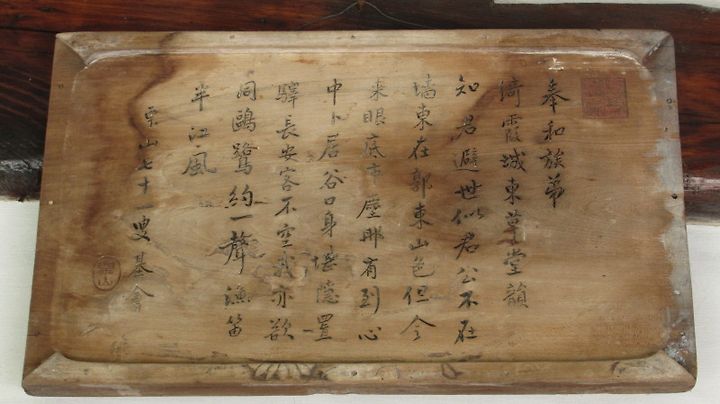 奉和族弟
綺霞城東草堂韻
知君避世似君公不在
墻東在郭東山色但令
來眼底市塵那有到心
中卜居谷口身堪隱置
驛長安客不空我亦欲
同鷗鷺約一聲漁笛
半江風
栗山七十一叟基會